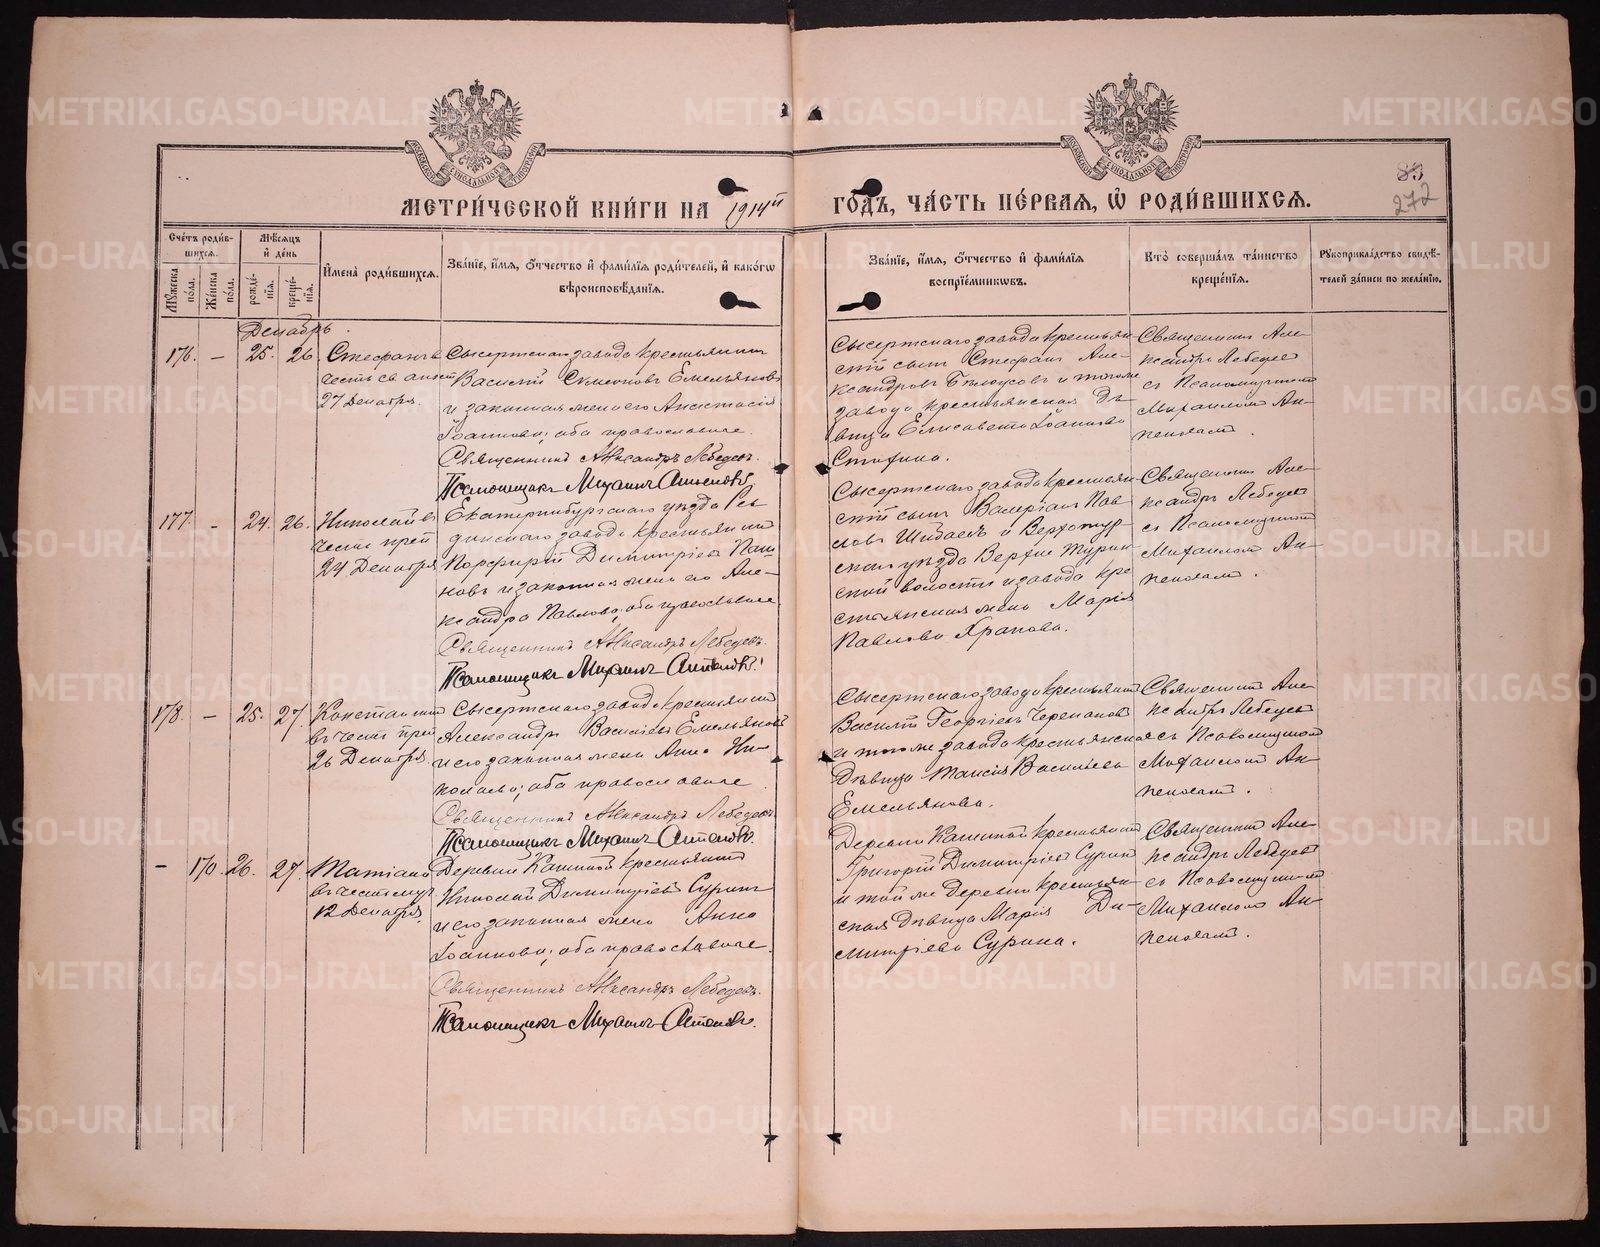 METRIKI.GASO-URAL.RU
МЕТРИ́ЧЕСКОЙ КНИ́ГИ НА 1914й ГО́ДЪ, ЧА́СТЬ ПЕ́РВАЯ, Ѡ РОДИ́ВШИХСЯ.
83
272
Сче́тъ роди́вшихся.
Му́жеска по́ла.
Же́нска по́ла.
Мѣ́сяцъ и́ де́нь
рожде́нія.
креще́нія.
И́мена̀ роди́вшихся.
Зва́ніе, и́мя, о́тчество и́ фами́лія роди́телей, и́ како́гѡ
вѣроисповѣ́данія.
Зва́ніе, и́мя, о́тчество и́ фами́лія
воспріе́мниковъ.
Кто̀ соверша́лъ та́инство
креще́нія.
Рꙋкоприкла́дство свидѣ́-
телей за́писи по жела́нію.
Декабрь.
176. – 25. 26.
Стефанъ въ
честь св. апост.
27 Декабря.
Сысертскаго завода крестьянинъ
Василій Симеоновъ Емельяновъ
и законная жена его Анастасія
Іоаннова; оба православные.
Священникъ Александръ Лебедевъ.
Псаломщикъ Михаилъ
Сысертскаго завода крестьян-
скій сынъ Стефанъ Але-
ксандровъ Бѣлоусовъ и тогоже
завода крестьянская дѣ-
вица Елисавета Іоаннова
Священникъ Але-
ксандръ Лебедев
съ Псаломщикомъ
Михаиломъ
177. – 24. 26.
Николай въ
честь преп.
24 Декабря
Екатеринбургскаго уѣзда Рев-
динскаго завода крестьянинъ
Порфирій Димитріевъ
новъ и законная жена его Але-
ксандра Павлова; оба православные.
Священникъ Александръ Лебедевъ.
Псаломщикъ Михаилъ
Сысертскаго завода крестьян-
скій сынъ Валеріанъ Пав-
ловъ Шибаевъ и Верхотур-
скаго уѣзда Верхне Турин-
ской волости и завода кре-
стьянская жена Марія
Павлова Храпова.
Священникъ Але-
ксандръ Лебедев
съ Псаломщикомъ
Михаиломъ
178. – 25. 27.
Константинъ
въ честь преп.
26 Декабря
Сысертскаго завода крестьянинъ
Александръ Васильевъ Емельяновъ
и его законная жена Анна Ни-
колаева; оба православные
Священникъ Александръ Лебедевъ
Псаломщикъ Михаилъ
Сысертскаго завода крестьянинъ
Василій Георгіевъ Черепановъ
и тогоже завода крестьянская
дѣвица Таисія Васильева
Емельянова.
Священникъ Але-
ксандръ Лебедев
съ Псаломщикомъ
Михаиломъ
– 170. 26. 27.
Татіана
въ честь муч.
12 Декабря
Деревни Кашиной крестьянинъ
Николай Димитріевъ Суринъ
и его законная жена Анна
Іоаннова; оба православные.
Священникъ Александръ Лебедевъ.
Псаломщикъ Михаилъ
Деревни Кашиной крестьянинъ
Григорій Димитріевъ Суринъ
и той же деревни крестьян-
ская дѣвица Марія Ди-
митріева Сурина.
Священникъ Але-
ксандръ Лебедев
съ Псаломщикомъ
Михаиломъ